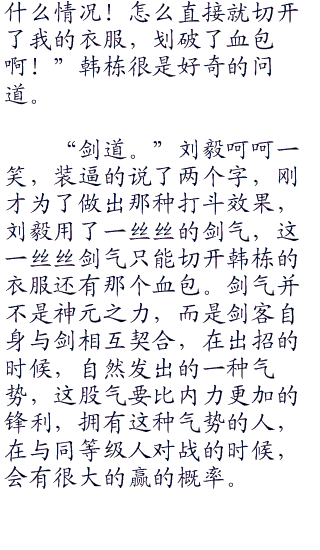 什么情况！怎么直接就切开
了我的衣服，划破了血包
啊！”韩栋很是好奇的问
道。
“剑道。”刘毅呵呵一
笑，装逼的说了两个字，刚
才为了做出那种打斗效果，
刘毅用了一丝丝的剑气，这
一丝丝剑气只能切开韩栋的
衣服还有那个血包。剑气并
不是神元之力，而是剑客自
身与剑相互契合，在出招的
时候，自然发出的一种气
势，这股气要比内力更加的
锋利，拥有这种气势的人，
在与同等级人对战的时候，
会有很大的赢的概率。